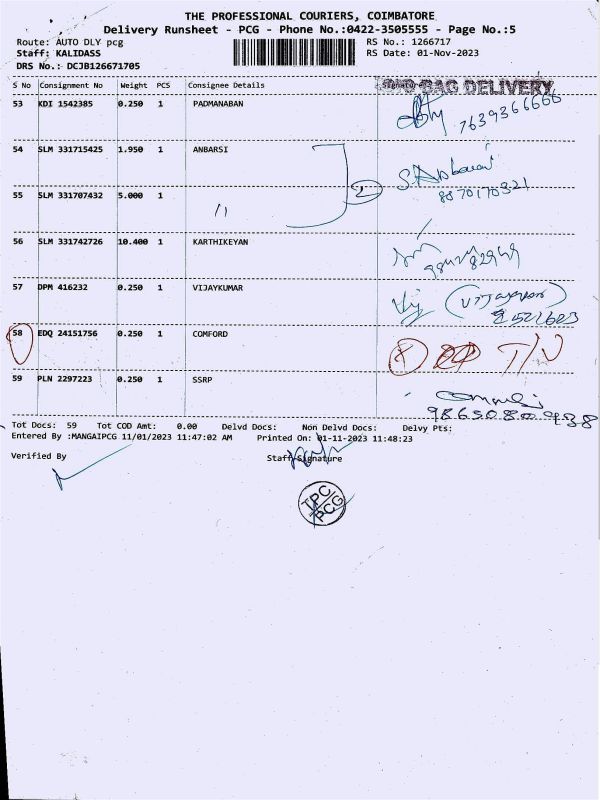 THE PROFESSIONAL COURIERS, COIMBATORE
Delivery Runsheet - PCG - Phone No.:0422-3505555 - Page No.:5
Route: AUTO DLY pcg RS No.: 1266717
Staff: KALIDASS RS Date: 01-Nov-2023
DRS No.: DCJB126671705
S No Consignment No Weight PCS Consignee Details Signature BAG DELIVERY
53 KDI 1542385 0.250 1 PADMANABAN
7639366666
54 SLM 331715425 1.950 1 ANBARSI
55 SLM 331707432 5.000 1 2 8870170321
11
56 SLM 331742726 10.400 1 KARTHIKEYAN
57 DPM 416232 0.250 1 VIJAYKUMAR
58 EDQ 24151756 0.250 1 COMFORD
59 PLN 2297223 0.250 1 SSRP
Tot Docs: 59 Tot COD Amt: 0.00 Delvd Docs: Non Delvd Docs: Delvy Pts:
Entered By :MANGAIPCG 11/01/2023 11:47:02 AM Printed On: 01-11-2023 11:48:23
Verified By Staff Signature
TPC
PCG